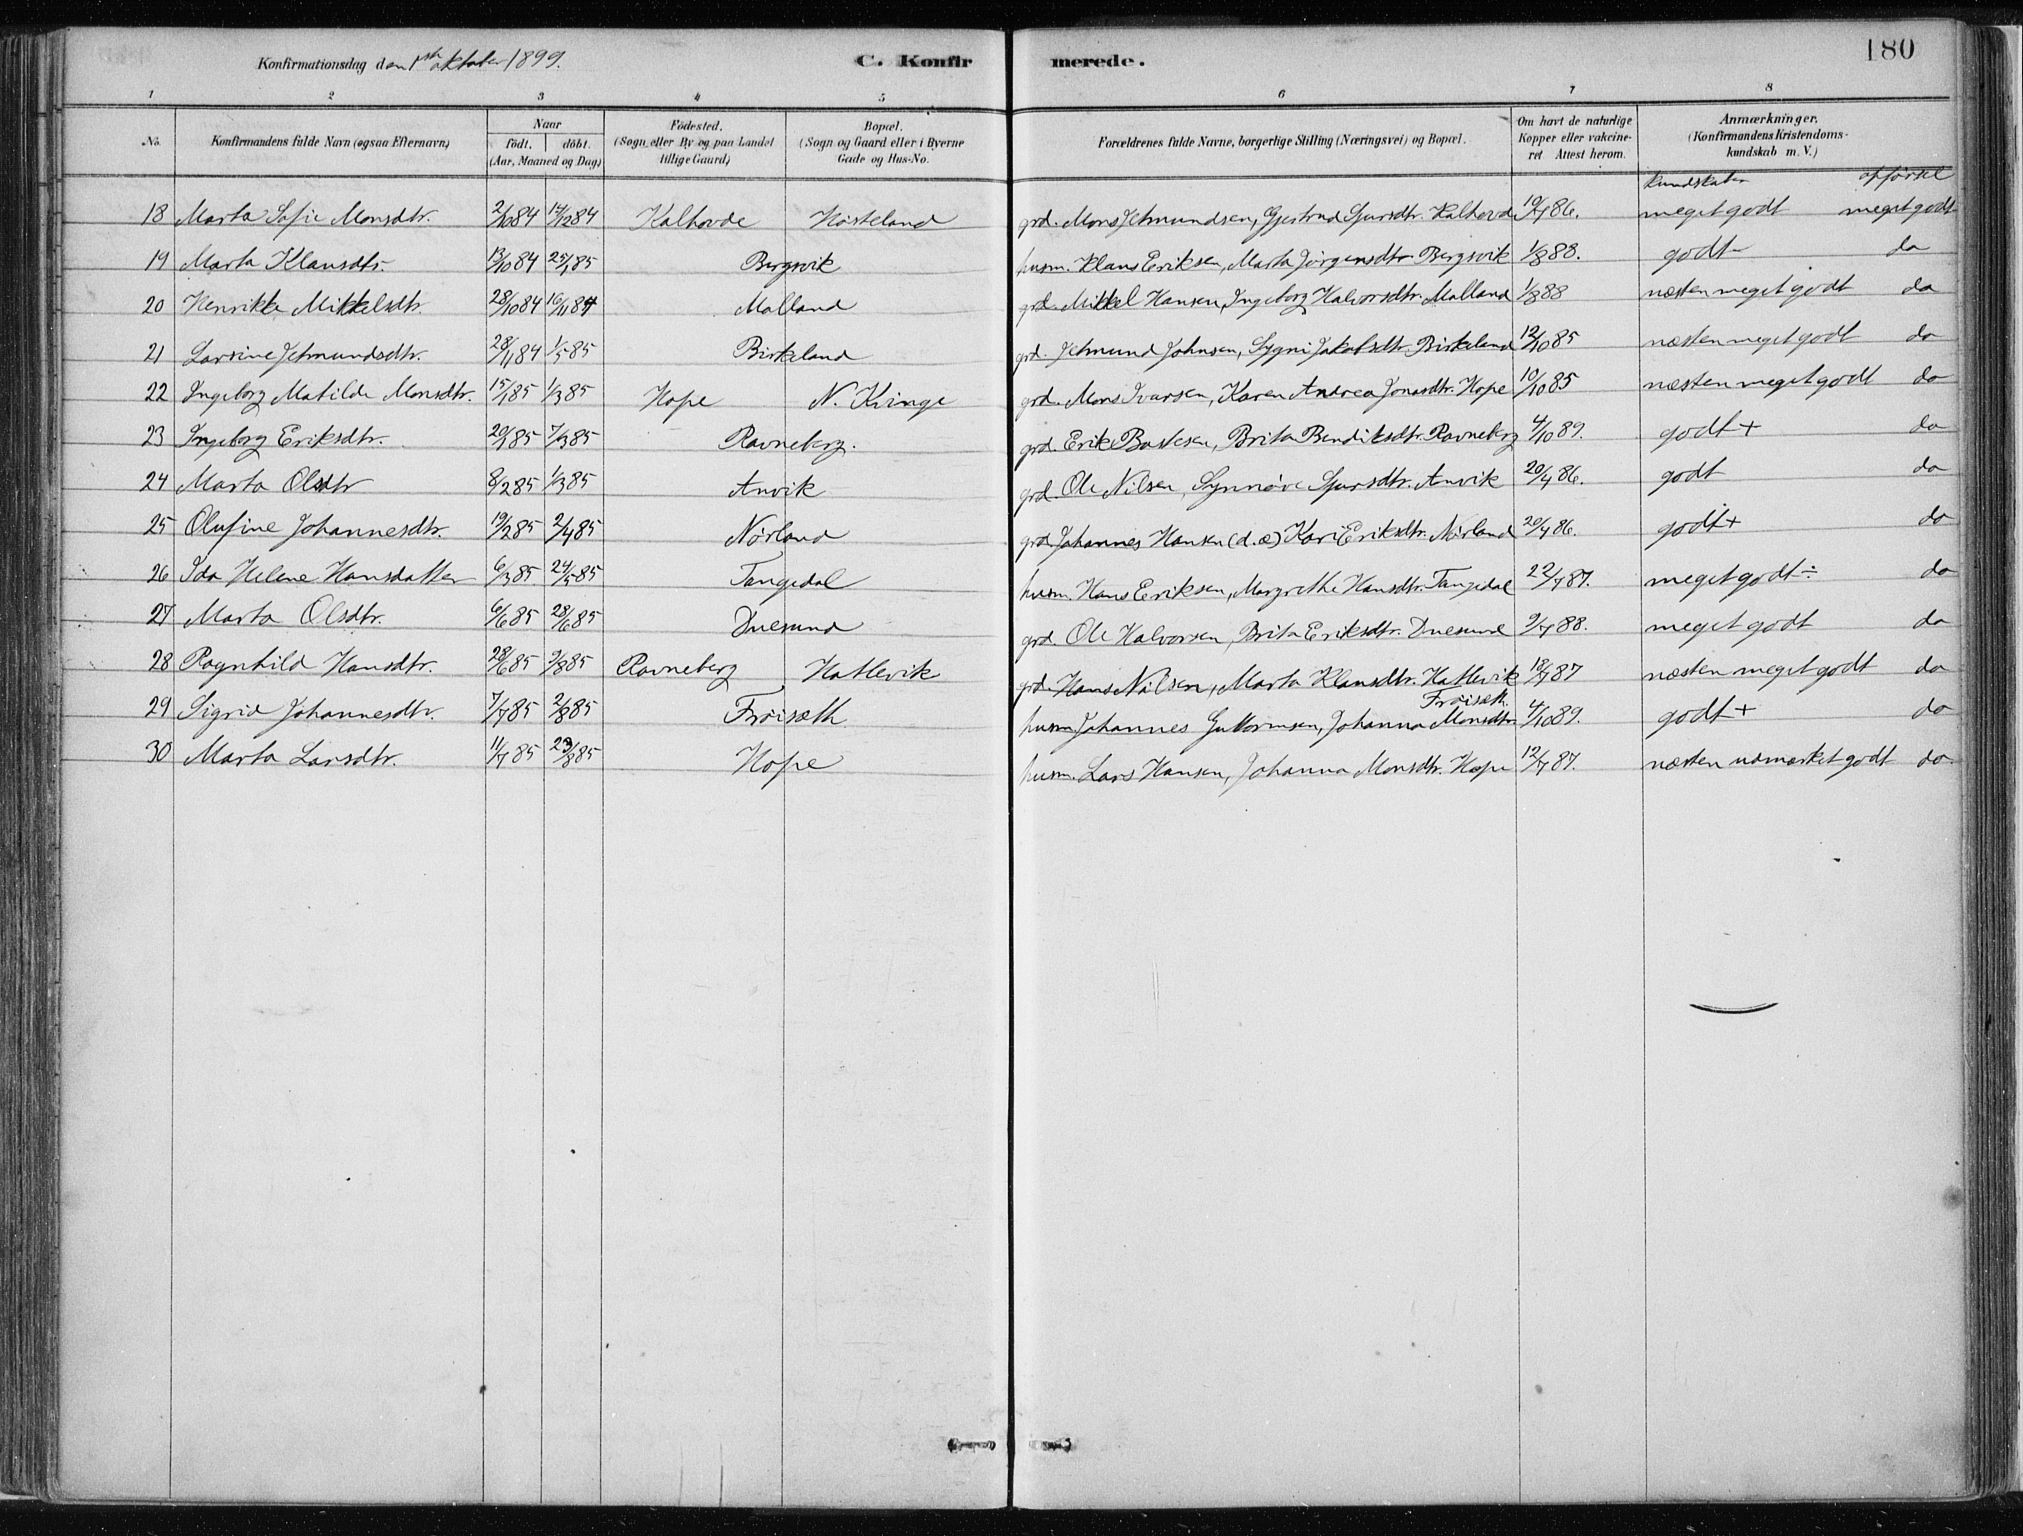 Konfirmationsdag den 1ste oktober 1899. C. Konfir merede. 180
1 2 3 4 5 6 7 8
No. Konfirmandens fulde Navn (ogsaa Efternavn) Naar født. døbt. (Aar, Maaned og Dag) Fødested. (Sogn eller By og paa Landet tillige Gaard) Bopæl. (Sogn og Gaard eller i Byerne Gade og Hus-No. Forældrenes fulde Navne, borgerlige Stilling (Næringsvei) og Bopæl. Om havt de naturlige Kopper eller vakcineret Attest herom. Anmærkninger. (Konfirmandens Kristendomskundskab m. V.)
kundskaber opførsel
18 Marta Sofie Monsdtr. 2/10 84 14/12 84 Kalhovde Høsteland grd. Mons Jetmundsen, Gjertrud Sjursdtr. Kalhovde 10/7 86. meget godt meget godt
19 Marta Klausdtr. 13/10 84 25/1 85 Bergsvik husm. Klaus Eriksen, Marta Jørgensdtr. Bergsvik 1/8 88. godt do
20 Henrikke Mikkelsdtr. 28/10 84 16/11 84 Molland grd. Mikkel Hansen, Ingeborg Halvorsdtr. Molland 1/8 88 næsten meget godt do
21 Larsine Jetmundsdtr. 28/11 84 1/5 85 Birkeland grd. Jetmund Johnsen, Sygni Jakobsdtr. Birkeland 12/10 85 næsten meget godt do
22 Ingeborg Matilde Monsdtr. 15/1 85 1/3 85 Hope N. Kvinge grd. Mons Ivarsen, Karen Andrea Jonasdtr. Hope 10/10 85 næsten meget godt do
23 Ingeborg Eriksdtr. 20/1 85 7/3 85 Ravneberg. grd. Erik Bastesen, Brita Bendiksdtr. Ravneberg 4/10 89. godt + do
24 Marta Olsdtr 8/2 85 1/3 85 Anvik grd. Ole Nilsen, Synnøve Sjursdtr. Anvik 20/4 86. godt do
25 Olufine Johannesdtr. 19/2 85 2/4 85 Nørland grd. Johannes Hansen (d.æ) Kari Eriksdtr. Nørland 20/4 86. godt + do
26 Ida Helene Hansdatter 6/3 85 24/5 85 Tangedal husm. Hans Eriksen, Margrethe Hansdtr. Tangedal 22/7 87. meget godt ÷ do
27 Marta Olsdtr. 6/6 85 28/6 85 Duesund grd. Ole Halvorsen, Brita Eriksdtr. Duesund 9/7 88. meget godt do
28 Ragnhild Hansdtr. 28/6 85 9/8 85 Ravneberg Hatlevik grd. Hans Nilsen, Marta Klausdtr. Hatlevik 18/7 87 næsten meget godt do
29 Sigrid Johannesdtr. 7/7 85 2/8 85 Frøisæth husm. Johannes Guttormsen, Johanna Monsdtr Frøisæth. 4/10 89. godt + do
30 Marta Larsdtr. 11/7 85 23/8 85 Hope husm. Lars Hansen, Johanna Monsdtr. Hope 12/7 87. næsten udmærket godt do